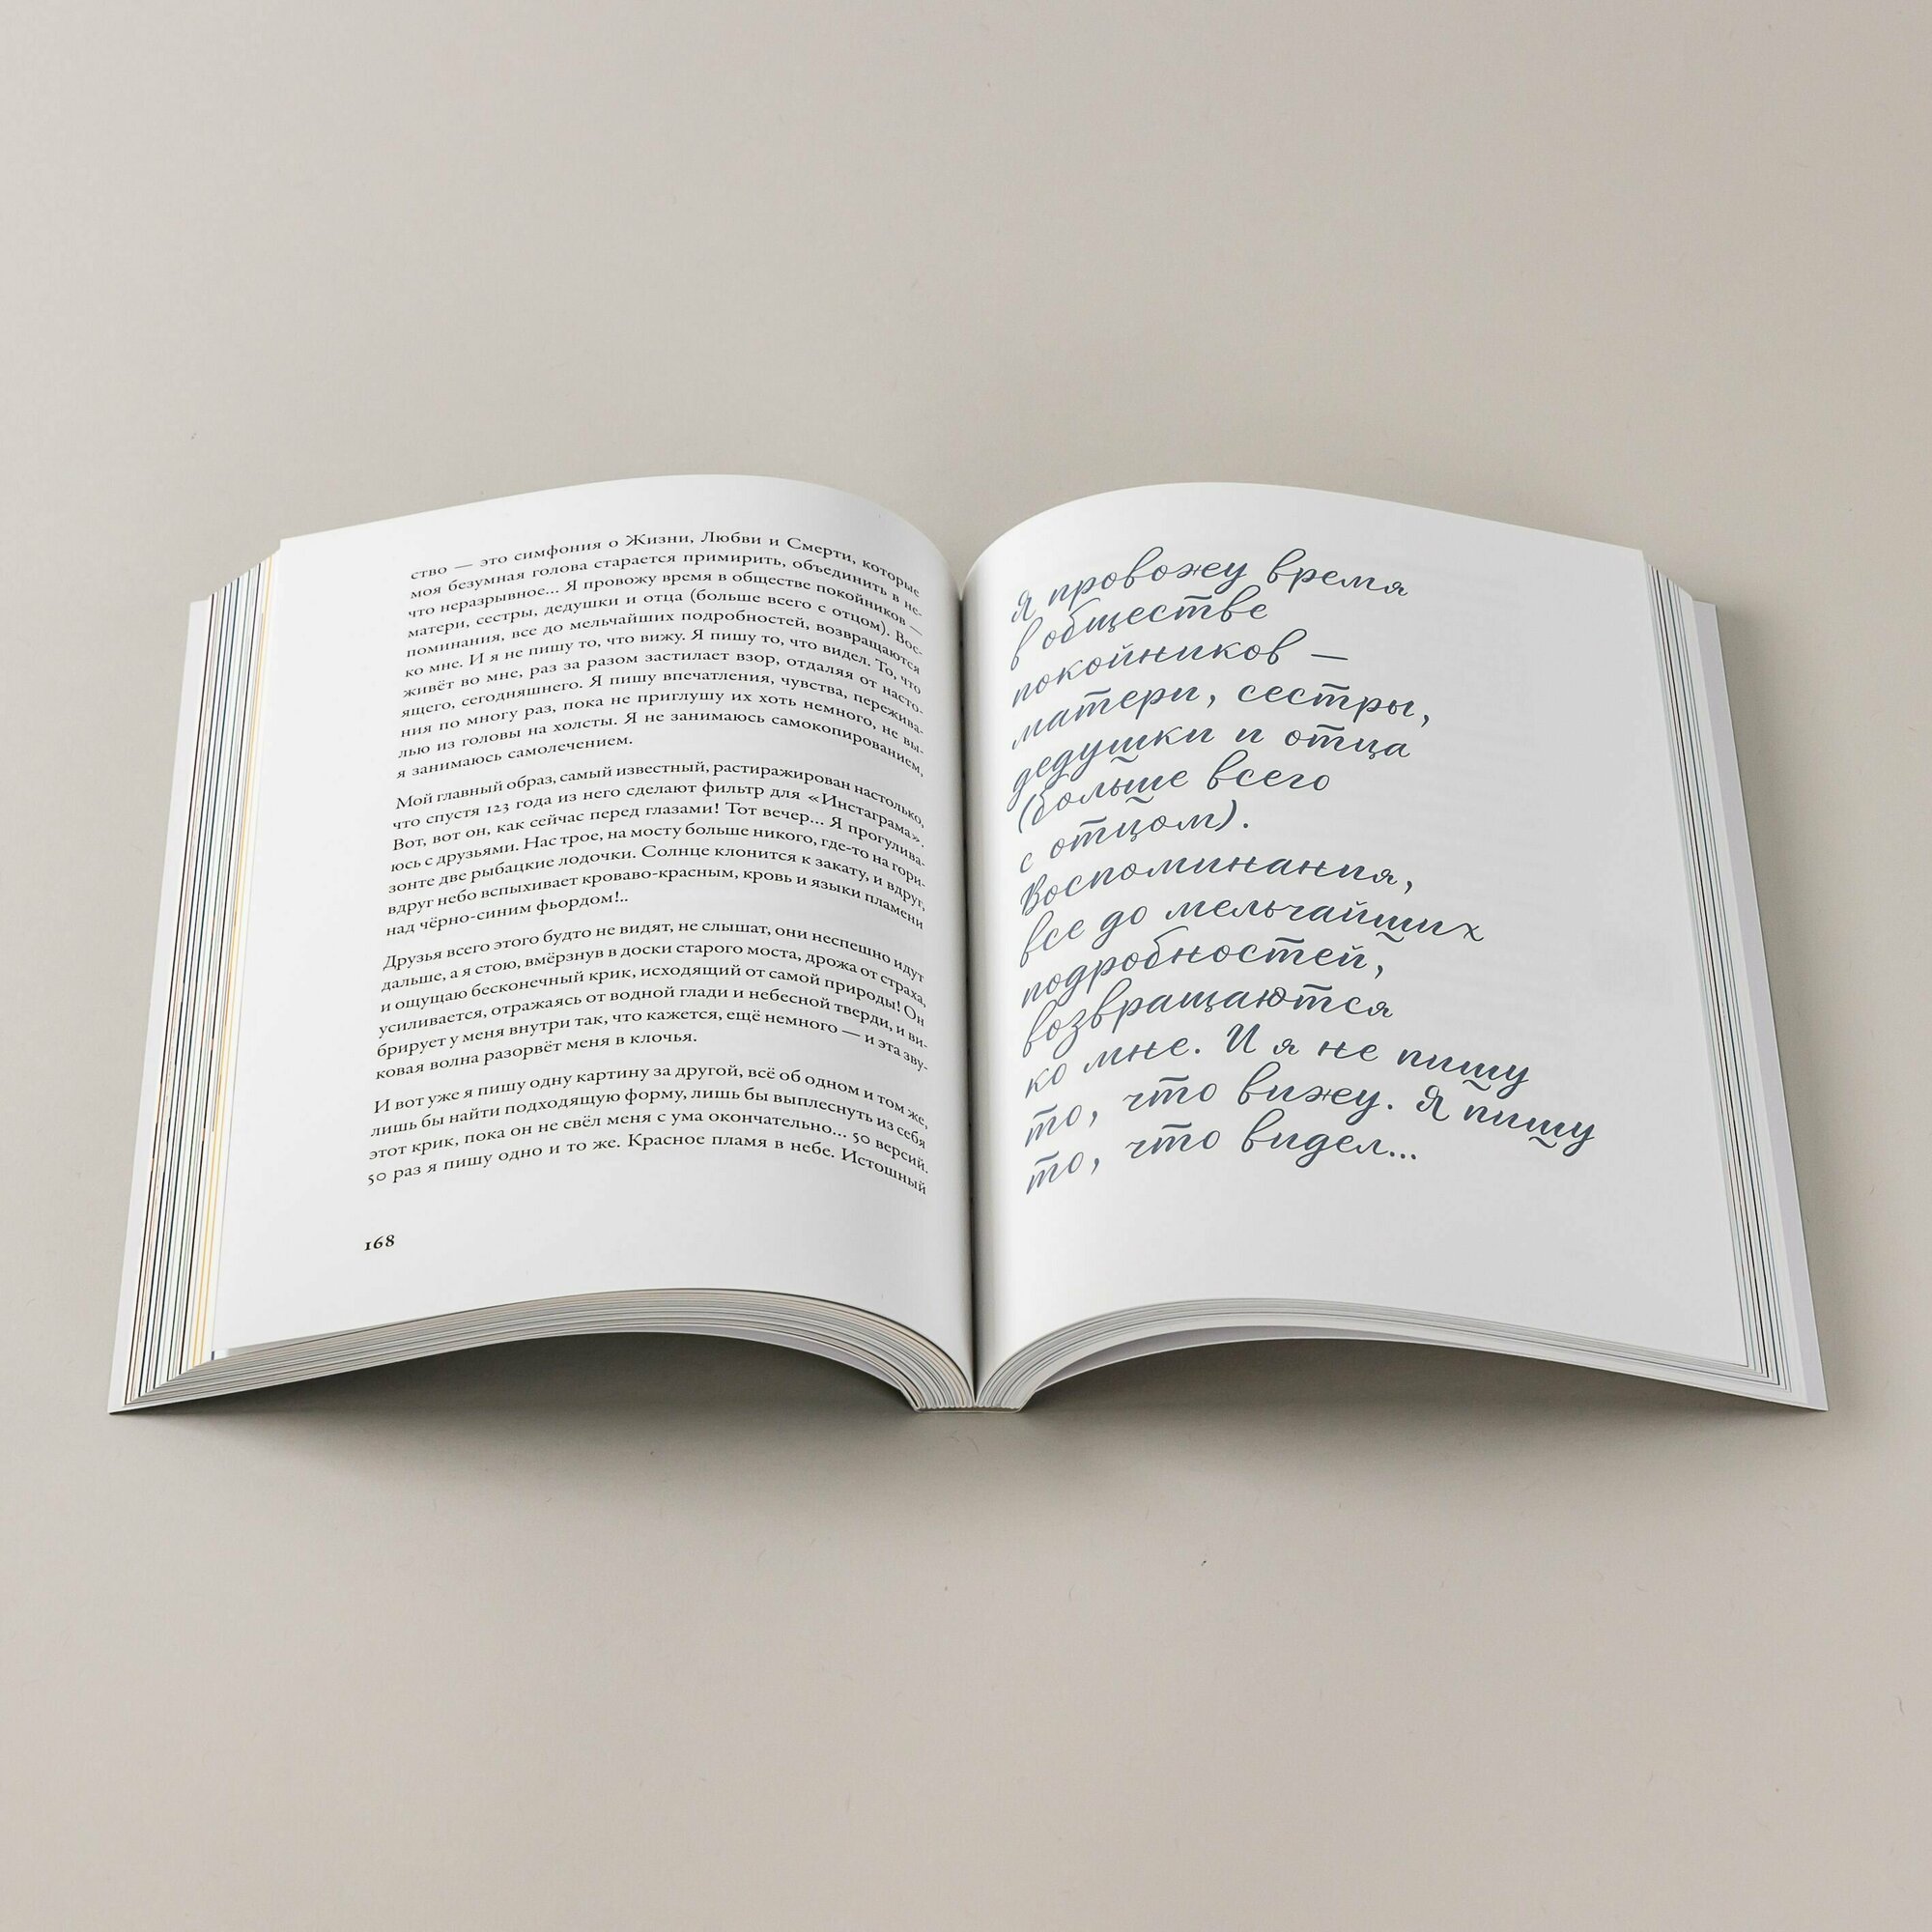 ство — это симфония о Жизни, Любви и Смерти, которые
моя безумная голова старается примирить, объединить в не-
что неразрывное... Я провожу время в обществе покойников —
матери, сестры, дедушки и отца (больше всего с отцом). Вос-
поминания, все до мельчайших подробностей, возвращаются
ко мне. И я не пишу то, что вижу. Я пишу то, что видел. То, что
живёт во мне, раз за разом застилает взор, отдаляя от насто-
ящего, сегодняшнего. Я пишу впечатления, чувства, пережива-
ния по многу раз, пока не приглушу их хоть немного, не вы-
лью из головы на холсты. Я не занимаюсь самокопированием,
я занимаюсь самолечением.
Мой главный образ, самый известный, растиражирован настолько,
что спустя 123 года из него сделают фильтр для «Инстаграма».
Вот, вот он, как сейчас перед глазами! Тот вечер... Я прогулива-
юсь с друзьями. Нас трое, на мосту больше никого, где-то на гори-
зонте две рыбацкие лодочки. Солнце клонится к закату, и вдруг,
вдруг небо вспыхивает кроваво-красным, кровь и языки пламени
над чёрно-синим фьордом!..
Друзья всего этого будто не видят, не слышат, они неспешно идут
дальше, а я стою, вмёрзнув в доски старого моста, дрожа от страха,
и ощущаю бесконечный крик, исходящий от самой природы! Он
усиливается, отражаясь от водной глади и небесной тверди, и ви-
брирует у меня внутри так, что кажется, ещё немного — и эта зву-
ковая волна разорвёт меня в клочья.
И вот уже я пишу одну картину за другой, всё об одном и том же,
лишь бы найти подходящую форму, лишь бы выплеснуть из себя
этот крик, пока он не свёл меня с ума окончательно... 50 версий.
50 раз я пишу одно и то же. Красное пламя в небе. Истошный
168
Я провожу время
в обществе
покойников —
матери, сестры,
дедушки и отца
(больше всего
с отцом).
Воспоминания,
все до мельчайших
подробностей,
возвращаются
ко мне. И я не пишу
то, что вижу. Я пишу
то, что видел...